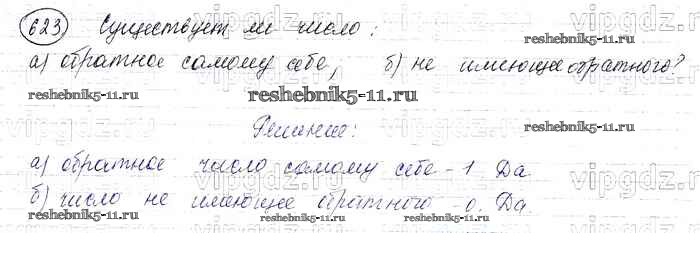 623 Существует ли число:
а) обратное самому себе, б) не имеющее обратного?
reshebnik5-11.ru reshebnik5-11.ru reshebnik5-11.ru
Решение:
а) обратное число самому себе - 1. Да
б) число не имеющее обратного - 0. Да.
reshebnik5-11.ru reshebnik5-11.ru reshebnik5-11.ru
vipgdz.ru